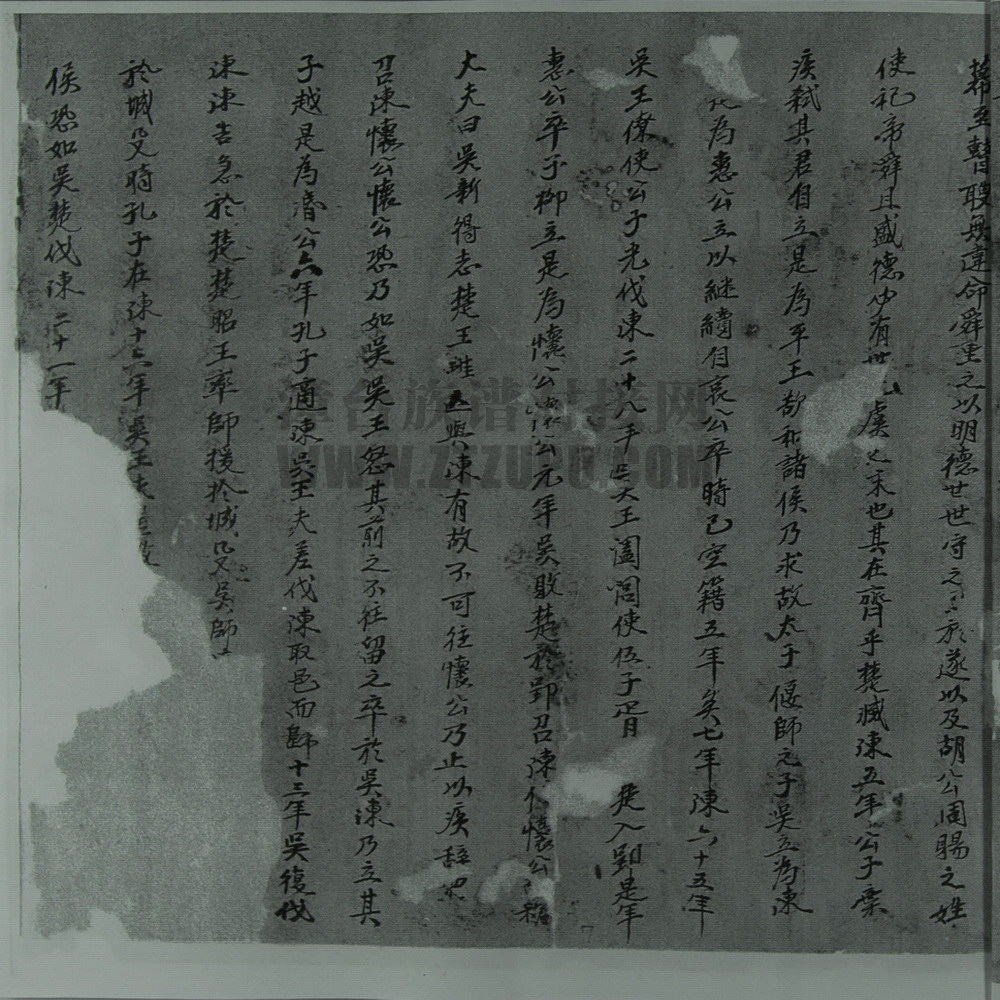 幕至瞽瞍無違命舜重之以明德世世守之及遂以及胡公周賜之姓
使祀帝舜且盛德必有世虞之末也其在齊乎楚滅陳五年公子棄
疾弒其君自立是為平王初和諸侯乃求故太子偃師之子吳立為陳
為惠公立以継續自哀公卒時已空籍五年矣七年陳六十五年
吳王僚使公子光伐陳二十八年大王闔閭使伍子胥 楚入郢是年
惠公卒子柳立是為懷公懷公元年吳敗楚於郢召陳懷公
大夫曰吳新得志楚王雖與陳有故不可往懷公乃止以疾辝
召陳懷公懷公恐乃如吳吳王怒其前之不往留之卒於吳陳乃立其
子越是為湣公六年孔子適陳吳王夫差伐陳取邑而歸十三年吳復伐
陳陳告急於楚楚昭王率師援於城父吳師
於城父時孔子在陳十三年吳王夫差
侯恐如吳楚伐陳二十一年
濤谷族谱对接网
WWW.ZJZUPU.COM